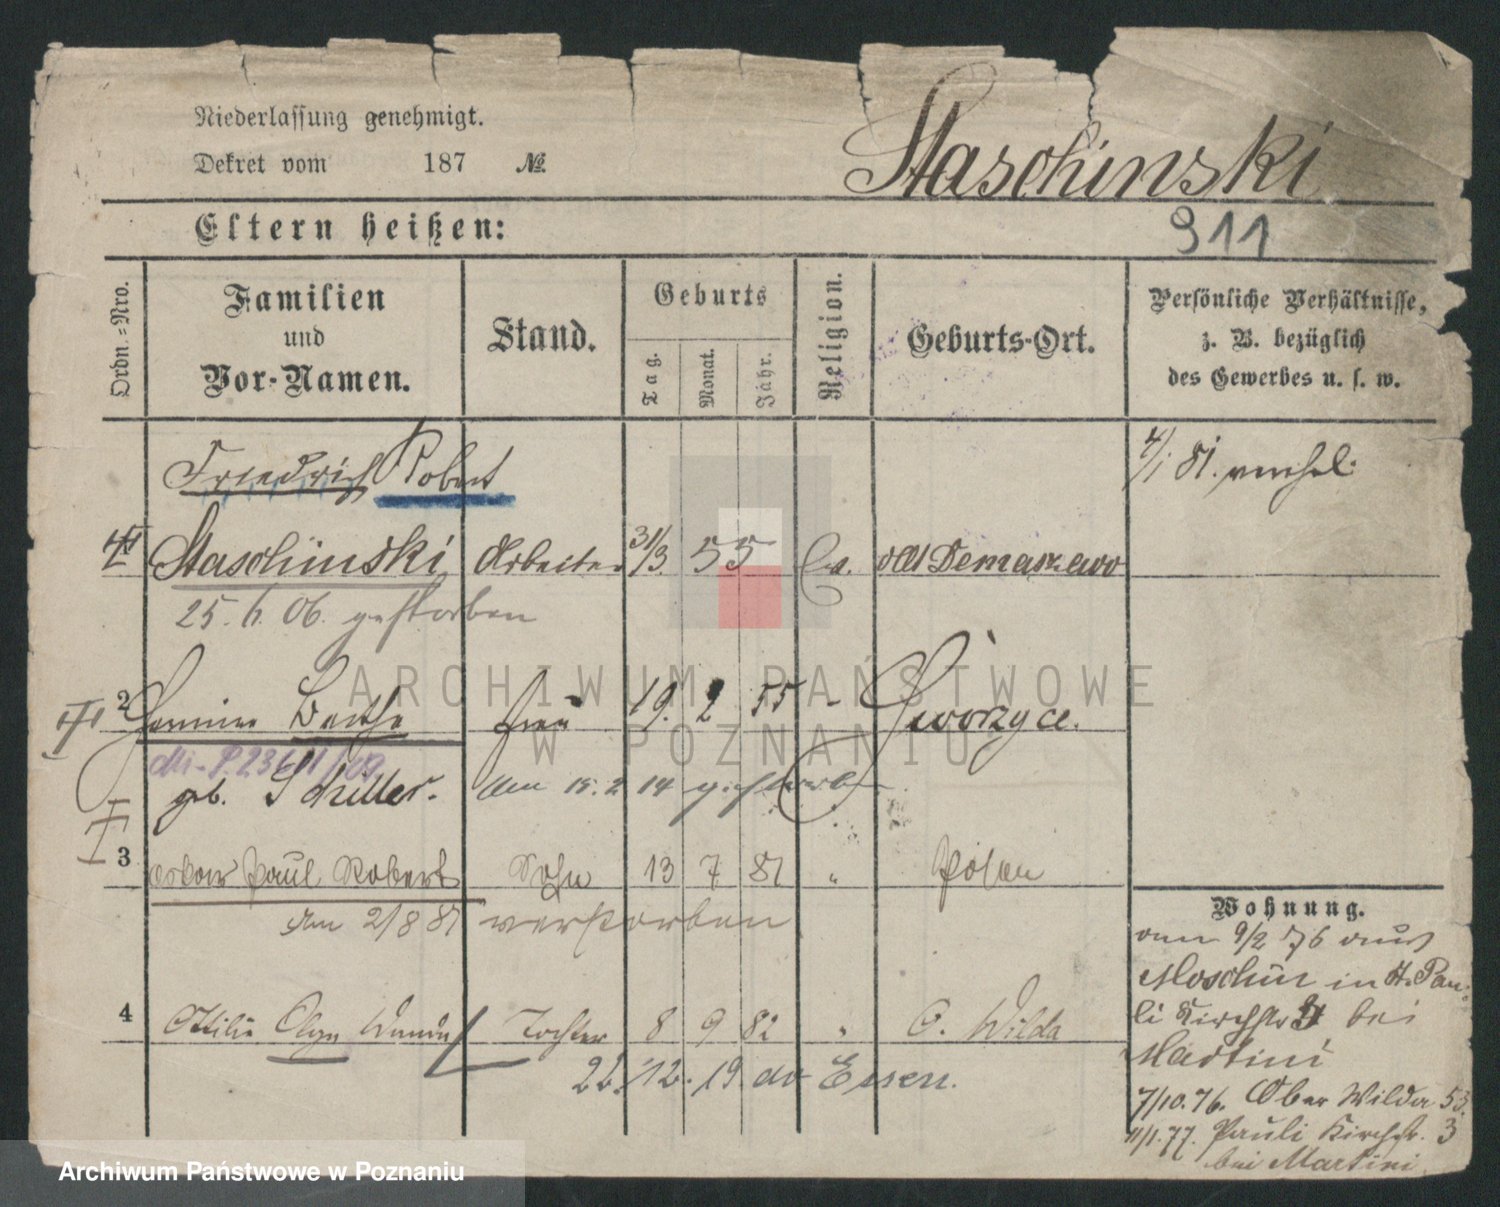 Niederlassung genehmigt.
Dekret vom 187 №.
Staschinski
Eltern heißen:
911
Ordn.-Nro.
Familien
und
Vor-Namen.
Stand.
Geburts
Tag.
Monat.
Jahr.
Religion.
Geburts-Ort.
Persönliche Verhältnisse,
z. B. bezüglich
des Gewerbes u. s. w.
Friedrich Robert
4/1 81.
Staschinski Arbeiter 31/3. 55
25. 6. 06. gestorben
2 Bertha Frau 19. 2 55 - Gworzyce.
geb. Schiller. am 15. 2 14 gestorben
3 Oskar Paul Robert Sohn 13 7 81 " Posen
am 2/8 81 verstorben
Wohnung.
am 9/2 76 aus
Moschin in St. Pau-
li Kirchstr bei
Martini
4 Ottilie Olga Wanda Tochter 8 9 82 " O. Wilda
22. 12. 19. av Essen.
7/10. 76. Ober Wilda 53.
11/1. 77. Pauli Kirchstr. 3
bei Martini
ARCHIWUM PAŃSTWOWE
W POZNANIU
Archiwum Państwowe w Poznaniu